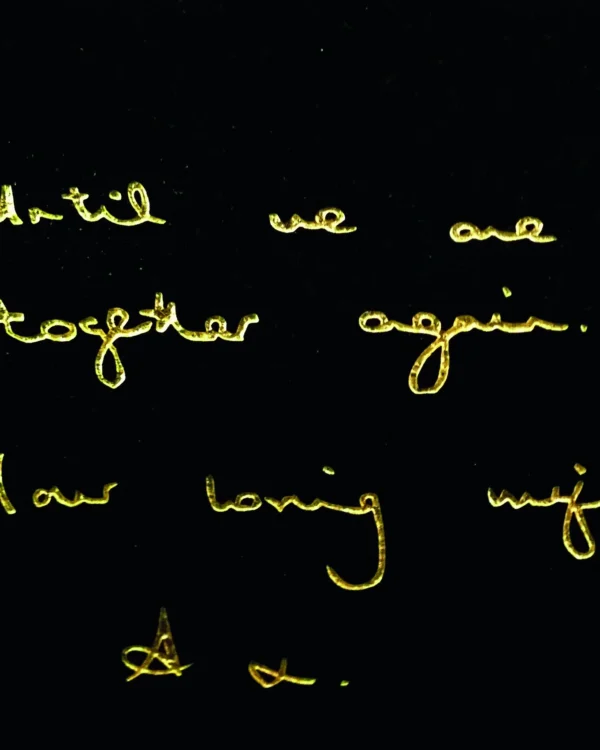 Until we are
together again.
Your loving wif
A x.